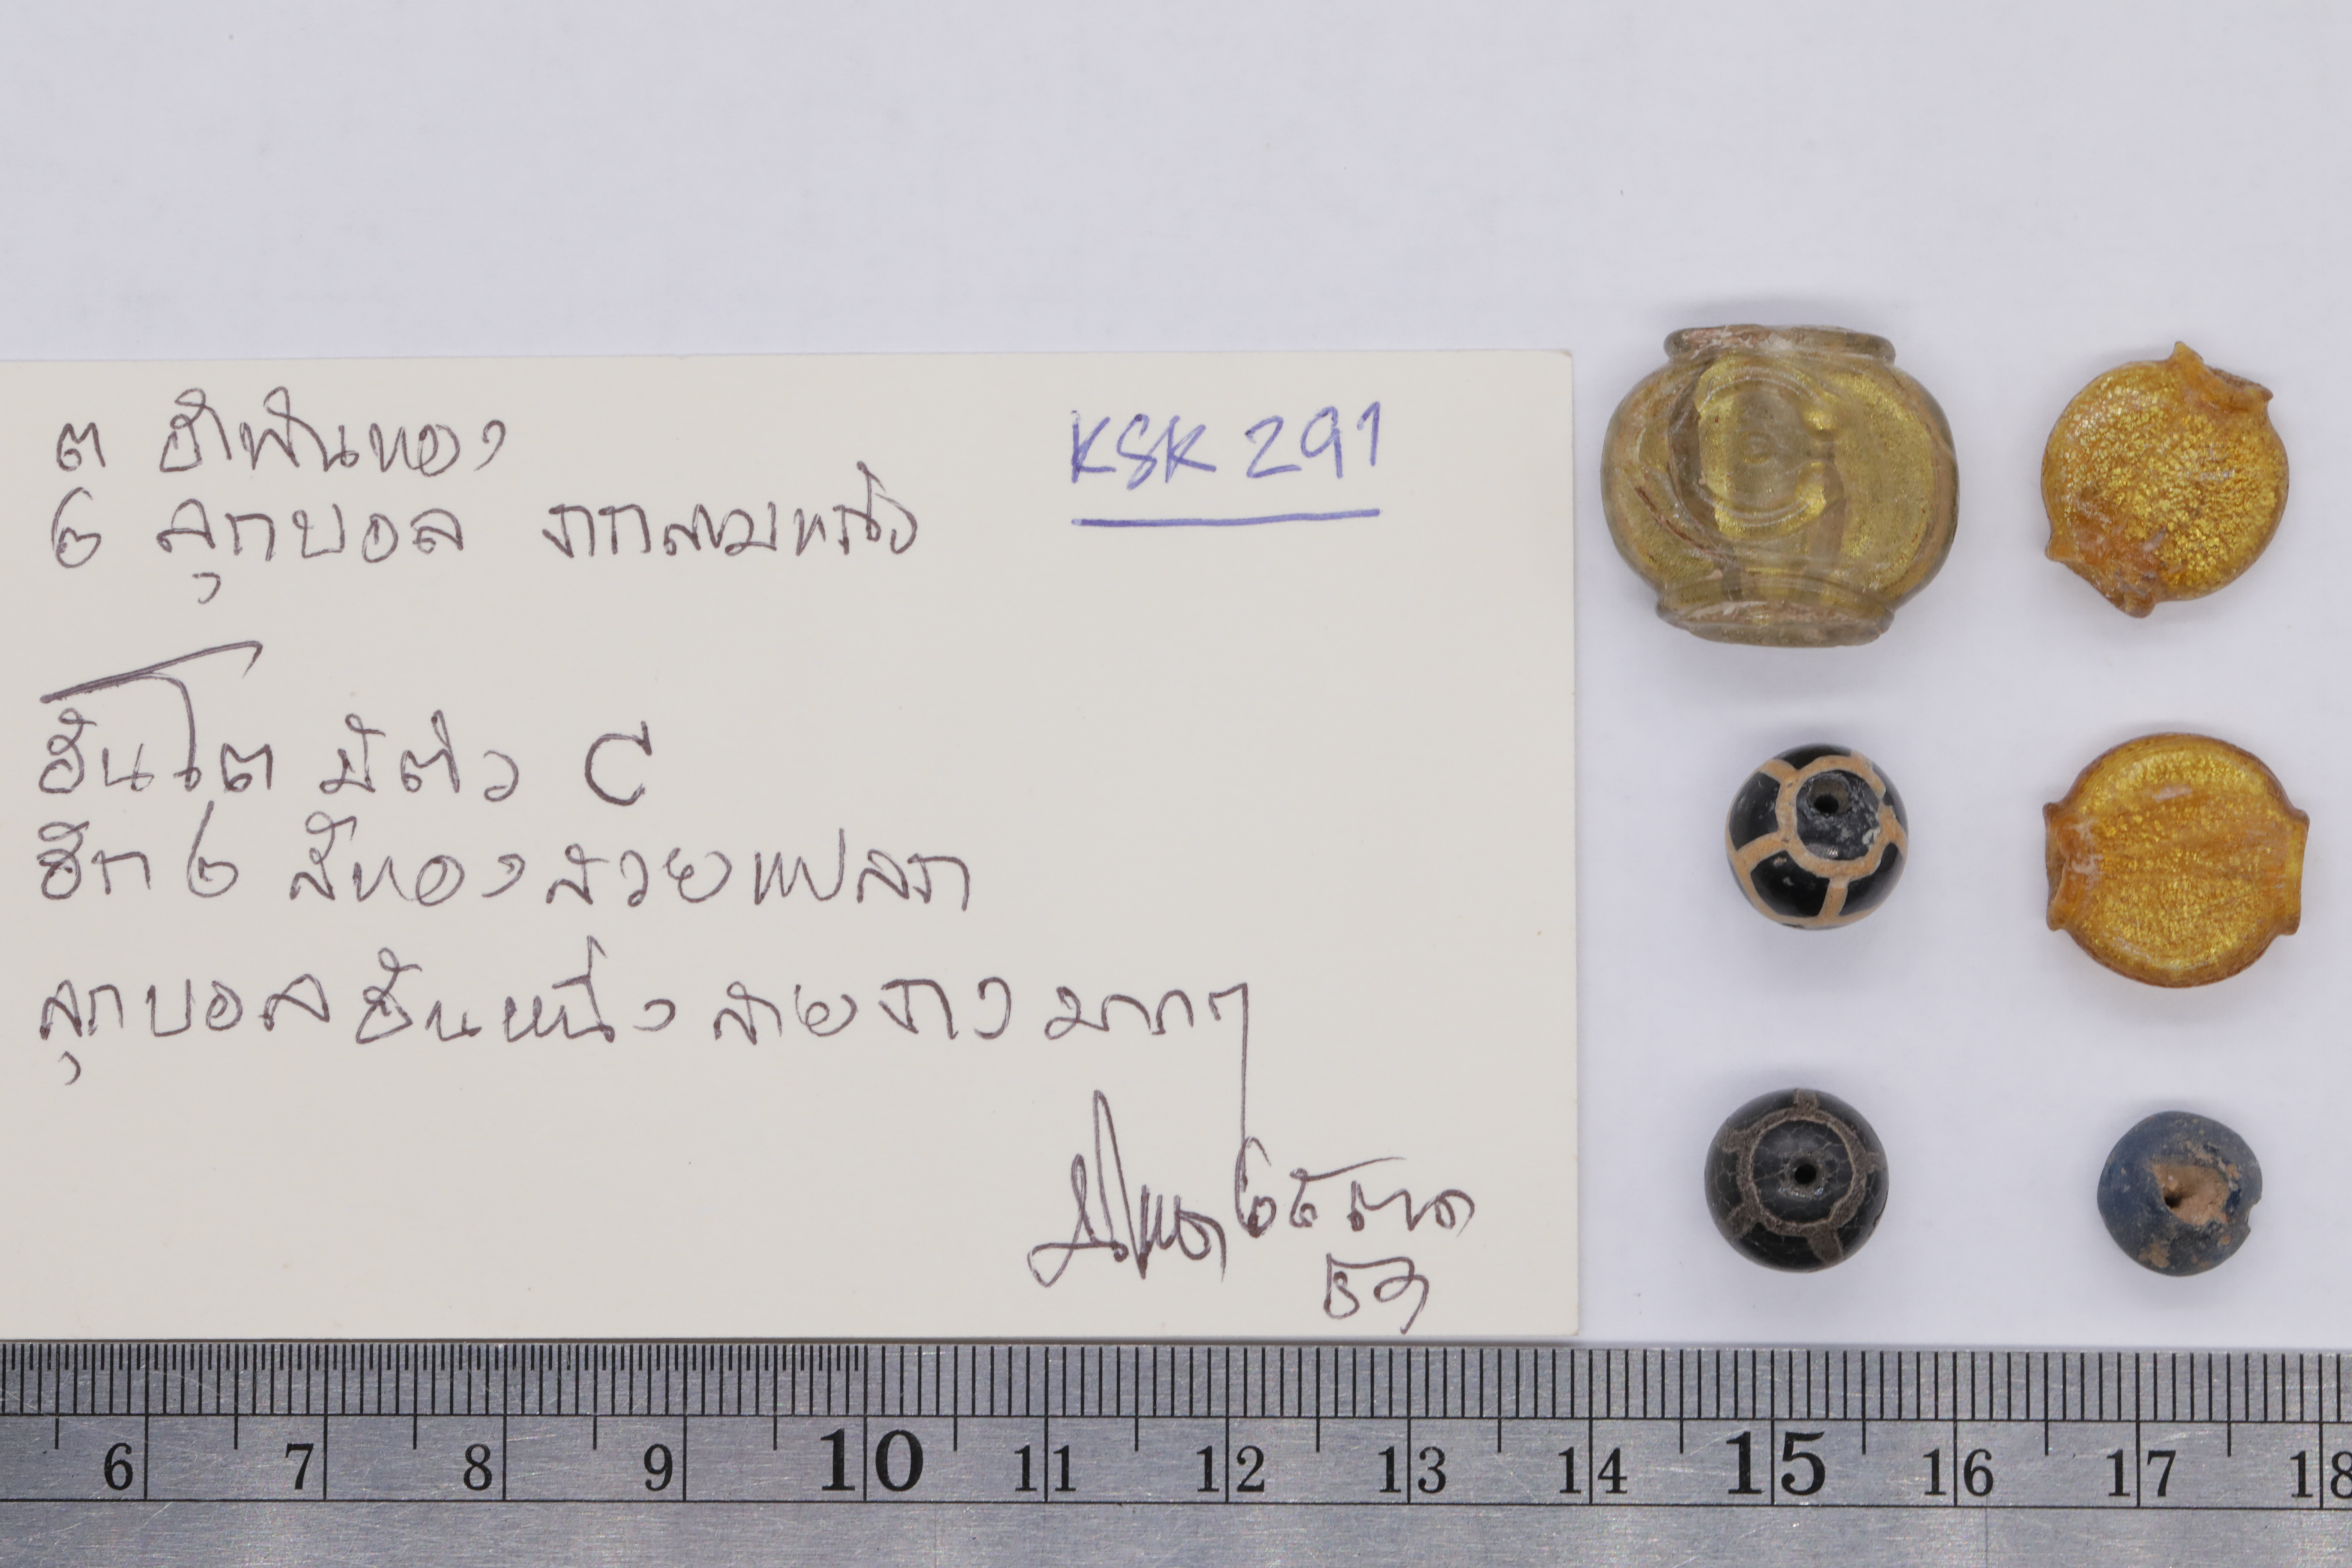 ๓ อำพันทอง
๒ ลูกบอล
KSK 291
อันโต มีตัว C
อีก ๒ สีทองสวยแปลก
ลูกบอลอันหนึ่ง ลายงามมากๆ
๒๕ ตาค
๕๖
6 7 8 9 10 11 12 13 14 15 16 17 18